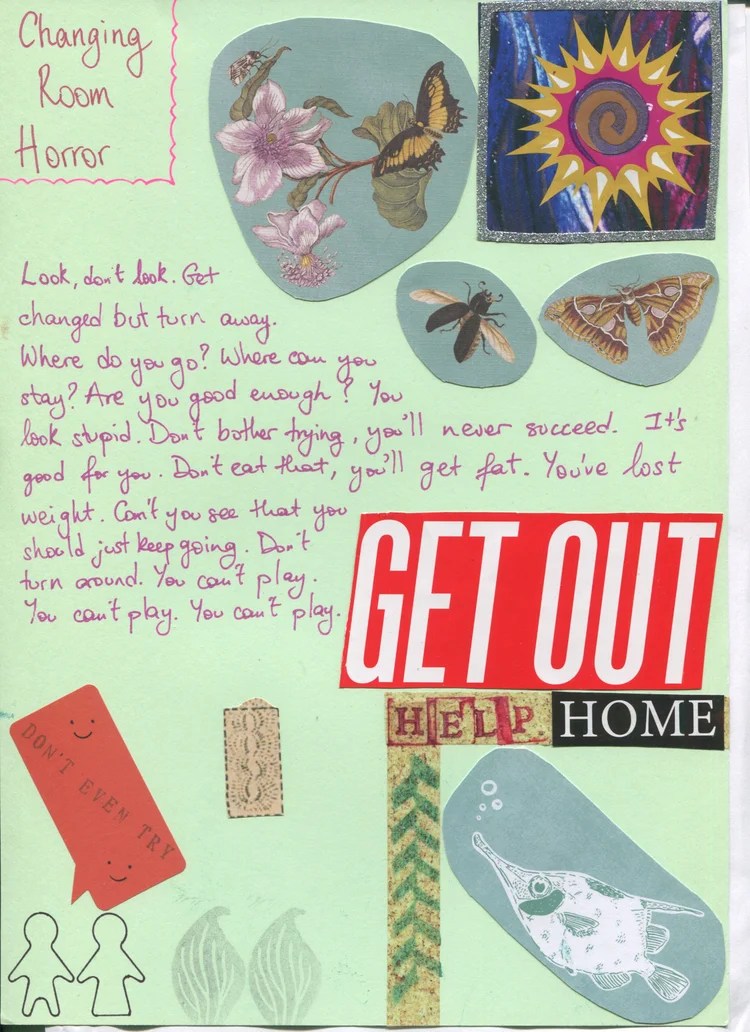 Changing
Room
Horror
Look, don't look. Get
changed but turn away.
Where do you go? Where can you
stay? Are you good enough? You
look stupid. Don't bother trying, you'll never succeed. It's
good for you. Don't eat that, you'll get fat. You've lost
weight. Can't you see that you
should just keep going. Don't
turn around. You can't play.
You can't play. You can't play.
GET OUT
HELP HOME
DON'T EVEN TRY